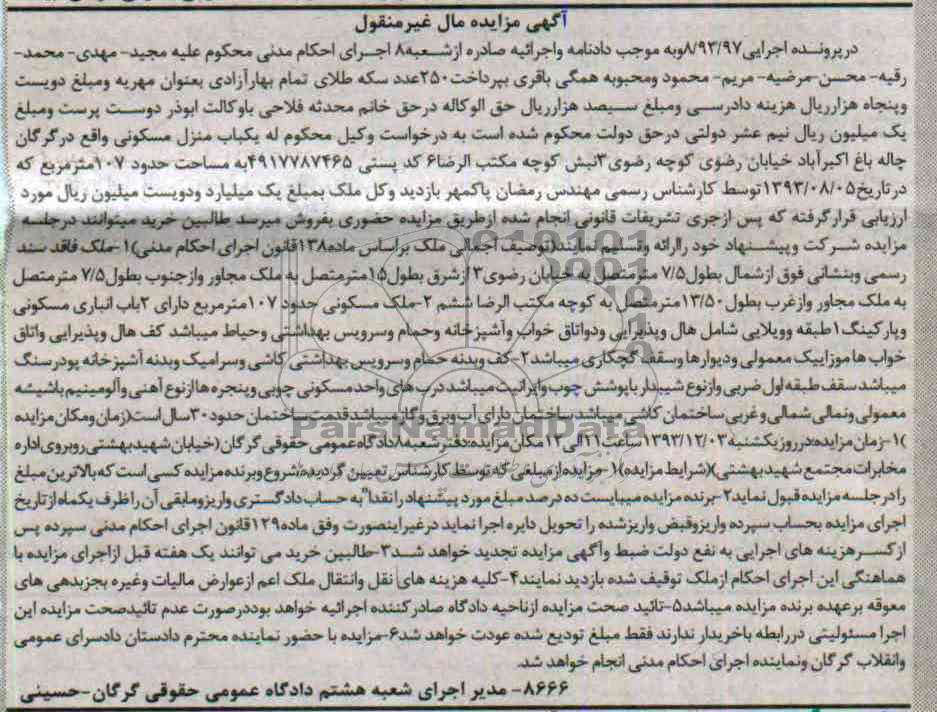 آگهی مزایده مال غیرمنقول
درپرونده اجرایی۸/۹۳/۹۷وبه موجب دادنامه واجرائیه صادره ازشعبه۸ اجرای احکام مدنی محکوم علیه مجید- مهدی- محمد-
رقیه- محسن-مرضیه- مریم- محمود ومحبوبه همگی باقری بپرداخت۲۵۰عدد سکه طلای تمام بهارآزادی بعنوان مهریه ومبلغ دویست
وپنجاه هزارریال هزینه دادرسی ومبلغ سیصد هزارریال حق الوکاله درحق خانم محدثه فلاحی باوکالت ابوذر دوست پرست ومبلغ
یک میلیون ریال نیم عشر دولتی درحق دولت محکوم شده است به درخواست وکیل محکوم له یکباب منزل مسکونی واقع درگرگان
چاله باغ اکبرآباد خیابان رضوی کوچه رضوی۳نبش کوچه مکتب الرضا۶ کد پستی ۴۹۱۷۷۸۷۴۶۵به مساحت حدود ۱۰۷مترمربع که
درتاریخ۱۳۹۳/۰۸/۰۵توسط کارشناس رسمی مهندس رمضان پاکمهر بازدید وکل ملک بمبلغ یک میلیارد ودویست میلیون ریال مورد
ارزیابی قرارگرفته که پس ازجری تشریفات قانونی انجام شده ازطریق مزایده حضوری بفروش میرسد طالبین خرید میتوانند درجلسه
مزایده شرکت وپیشنهاد خود راارائه وتسلیم نمایند(توصیف اجمالی ملک براساس ماده۱۳۸قانون اجرای احکام مدنی)۱-ملک فاقد سند
رسمی وبنشانی فوق ازشمال بطول۷/۵ مترمتصل به خیابان رضوی۳ ازشرق بطول۱۵مترمتصل به ملک مجاور وازجنوب بطول۷/۵ مترمتصل
به ملک مجاور وازغرب بطول۱۳/۵۰مترمتصل به کوچه مکتب الرضا ششم ۲-ملک مسکونی حدود ۱۰۷مترمربع دارای ۲باب انباری مسکونی
وپارکینگ۱طبقه وویلایی شامل هال وپذیرایی ودواتاق خواب وآشپزخانه وحمام وسرویس بهداشتی وحیاط میباشد کف هال وپذیرایی واتاق
خواب ها موزاییک معمولی ودیوارها وسقف گچکاری میباشد۲-کف وبدنه حمام وسرویس بهداشتی کاشی وسرامیک وبدنه آشپزخانه پودرسنگ
میباشد سقف طبقه اول ضربی وازنوع شیبدار باپوشش چوب وایرانیت میباشد درب های واحد مسکونی چوبی وپنجره هاازنوع آهنی وآلومینیم باشیشه
معمولی ونمالی شمالی وغربی ساختمان کاشی میباشد ساختمان دارای آب وبرق وگاز میباشد قدمت ساختمان حدود۳۰سال است(زمان ومکان مزایده
)۱-زمان مزایده:درروزیکشنبه۱۳۹۳/۱۲/۰۳ساعت۱۱الی۱۲مکان مزایده:دفترشعبه۸دادگاه عمومی حقوقی گرگان(خیابان شهیدبهشتی روبروی اداره
مخابرات مجتمع شهیدبهشتی)(شرایط مزایده)۱-مزایده ازمبلغی که توسط کارشناس تعیین گردیده شروع وبرنده مزایده کسی است که بالاترین مبلغ
را درجلسه مزایده قبول نماید۲-برنده مزایده میبایست ده درصد مبلغ مورد پیشنهاد را نقدا" به حساب دادگستری واریزومابقی آن را ظرف یکماه ازتاریخ
اجرای مزایده بحساب سپرده واریزوقبض واریزشده را تحویل دایره اجرا نماید درغیراینصورت وفق ماده۱۲۹قانون اجرای احکام مدنی سپرده پس
ازکسرهزینه های اجرایی به نفع دولت ضبط وآگهی مزایده تجدید خواهد شد۳-طالبین خرید می توانند یک هفته قبل ازاجرای مزایده با
هماهنگی این اجرای احکام ازملک توقیف شده بازدید نمایند۴-کلیه هزینه های نقل وانتقال ملک اعم ازعوارض مالیات وغیره بجزبدهی های
معوقه برعهده برنده مزایده میباشد۵-تائید صحت مزایده ازناحیه دادگاه صادرکننده اجرائیه خواهد بوددرصورت عدم تائیدصحت مزایده این
اجرا مسئولیتی دررابطه باخریدار ندارند فقط مبلغ تودیع شده عودت خواهد شد۶-مزایده با حضور نماینده محترم دادستان دادسرای عمومی
وانقلاب گرگان ونماینده اجرای احکام مدنی انجام خواهد شد.
۸۶۶۶- مدیر اجرای شعبه هشتم دادگاه عمومی حقوقی گرگان-حسینی
ParsNamadData